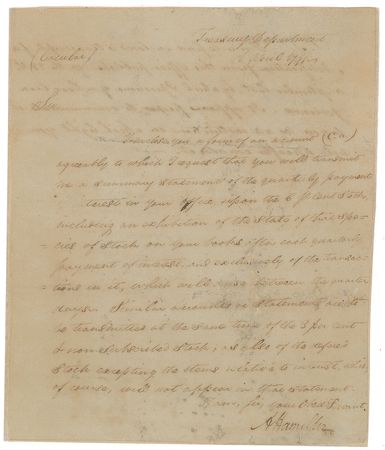 Treasury Department
(Circular)
April
Sir
you a form of an account (C.a)
agreeably to which I request that you will transmit
me a summary Statement of the quarterly payment
Interest in your Office upon the 6 P Cent Stock,
including an exhibition of the State of this spe=
=cies of Stock on your books after each quarterly
payment of interest, and exclusively of the transac=
=tions in it, which will between the quarter
days. Similar accounts or Statements are to
be transmitted at the same time of the 3 per cent
& non subscribed Stock, as also of the deferred
Stock excepting the items relative to interest, which,
of course, will not appear in the statement.
I am, Sir, your Obed Servant
A Hamilton